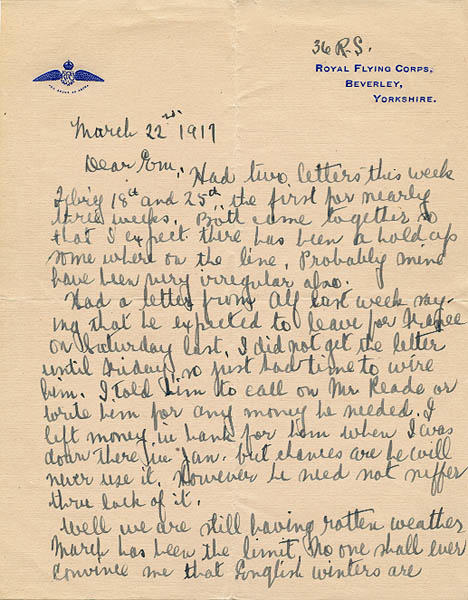 36 R.S.
ROYAL FLYING CORPS,
BEVERLEY,
YORKSHIRE.
March 22nd 1917
Dear Em,
Had two letters this week
Feb'y 18th and 25th, the first for nearly
three weeks. Both came together so
that I expect there has been a hold up
some where on the line. Probably mine
have been very irregular also.
Had a letter from Alf last week say-
ing that he expected to leave for France
on Saturday last. I did not get the letter
until Friday so just had time to wire
him. I told him to call on Mr. Reade or
write him for any money he needed. I
left money in bank for him when I was
down there in Jan. but chances are he will
never use it. However he need not suffer
thru lack of it.
Well we are still having rotten weather
March has been the limit. No one shall ever
convince me that English winters are